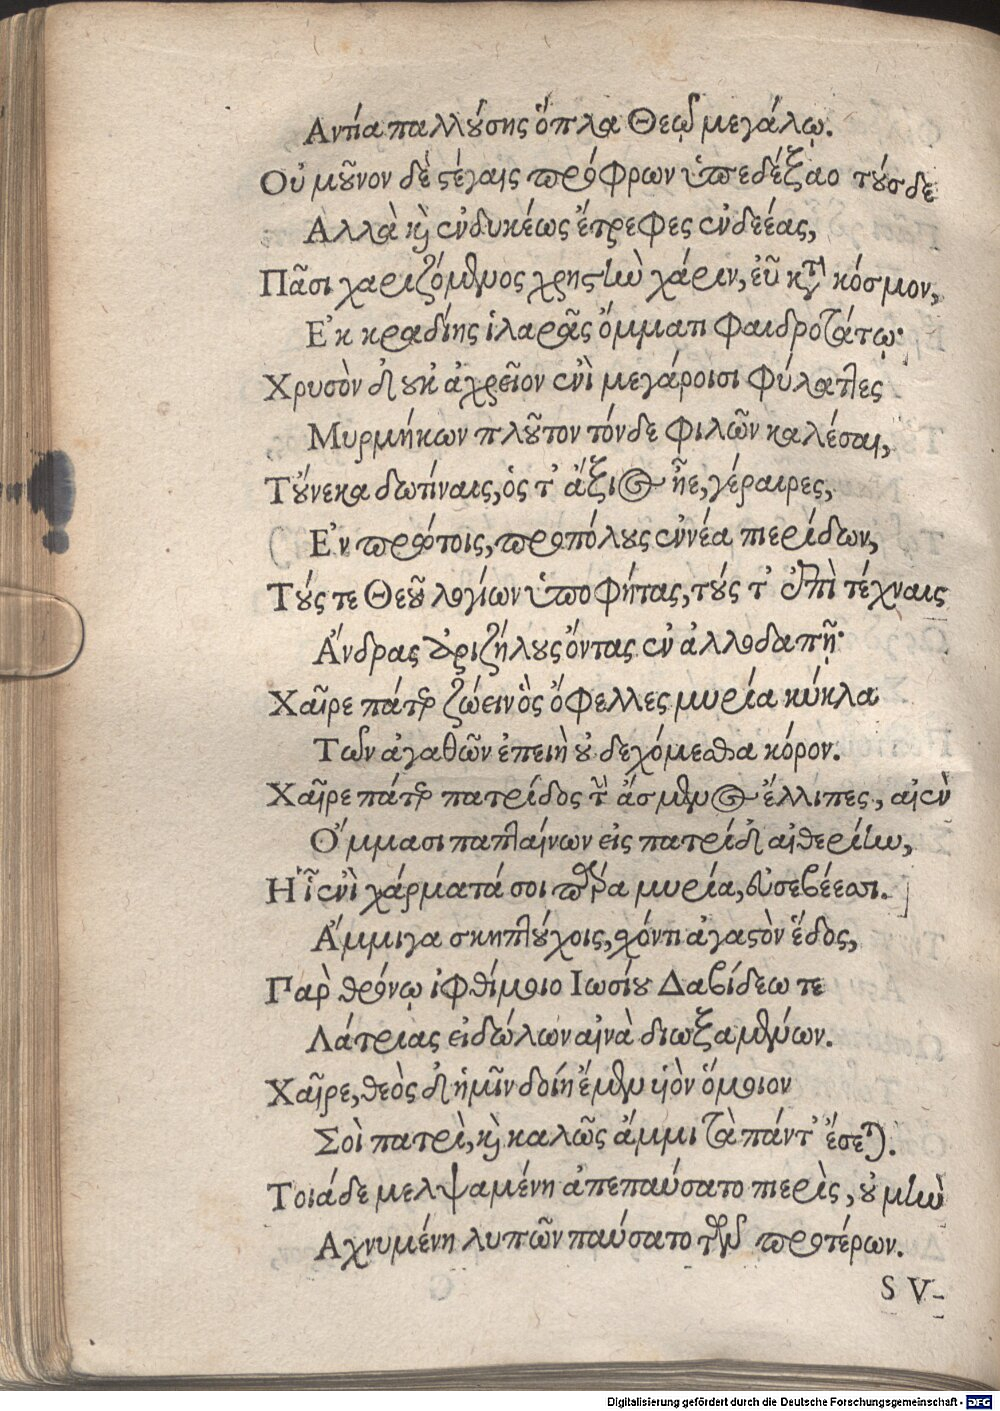 Αντία παλλούσης ὅπλα Θεῷ μεγάλῳ.
Οὐ μοῦνον δὲ στέγαις πρόφρων ὑπεδέξαο τούσδε
Αλλὰ καὶ ἐνδυκέως ἔτρεφες ἐνδεέας,
Πᾶσι χαριζόμενος χρηστὴν χάριν, εὖ κατὰ κόσμον,
Εκ κραδίης ἱλαρᾶς ὄμματι φαιδροτάτῳ·
Χρυσὸν δ' οὐκ ἀχρεῖον ἐνὶ μεγάροισι φύλαττες
Μυρμήκων πλοῦτον τόνδε φιλῶν καλέσαι,
Τούνεκα δωτίναις, ὅς τ' ἄξιος ἦε, γέραιρες,
Εν πρώτοις, προπόλους ἐννέα πιερίδων,
Τούς τε Θεοῦ λογίων ὑποφήτας, τούς τ' ἐπὶ τέχναις
Ἄνδρας ἀριζήλους ὄντας ἐν ἀλλοδαπῇ·
Χαῖρε πάτερ ζώειν ὃς ὄφελλες μυρία κύκλα
Τῶν ἀγαθῶν ἐπειὴ οὐ δεχόμεσθα κόρον.
Χαῖρε πάτερ πατρίδος τῆς ἄσμενος ἔλλιπες, αἰὲν
Ὄμμασι παπταίνων εἰς πατρίδ' αἰθερίην,
Ηἷ ἐνὶ χάρματά σοι πάρα μυρία, εὐσεβέεσσι.
Ἄμμιγα σκηπτούχοις, ναίοντι ἀγαστὸν ἕδος,
Παρ θρόνῳ ἰφθίμοιο Ιωσίου Δαβίδεώ τε
Λάτριας εἰδώλων αἰνὰ διωξαμένων.
Χαῖρε, θεὸς δ' ἡμῖν δοίη ἔμεν υἱὸν ὅμοιον
Σοὶ πατρὶ, καὶ καλῶς ἄμμι τὰ πάντ' ἔσεται.
Τοιάδε μελψαμένη ἀπεπαύσατο πιερὶς, οὐ μὴν
Αχνυμένη λυπῶν παύσατο τῶν προτέρων.
SV-
Digitalisierung gefördert durch die Deutsche Forschungsgemeinschaft - DFG